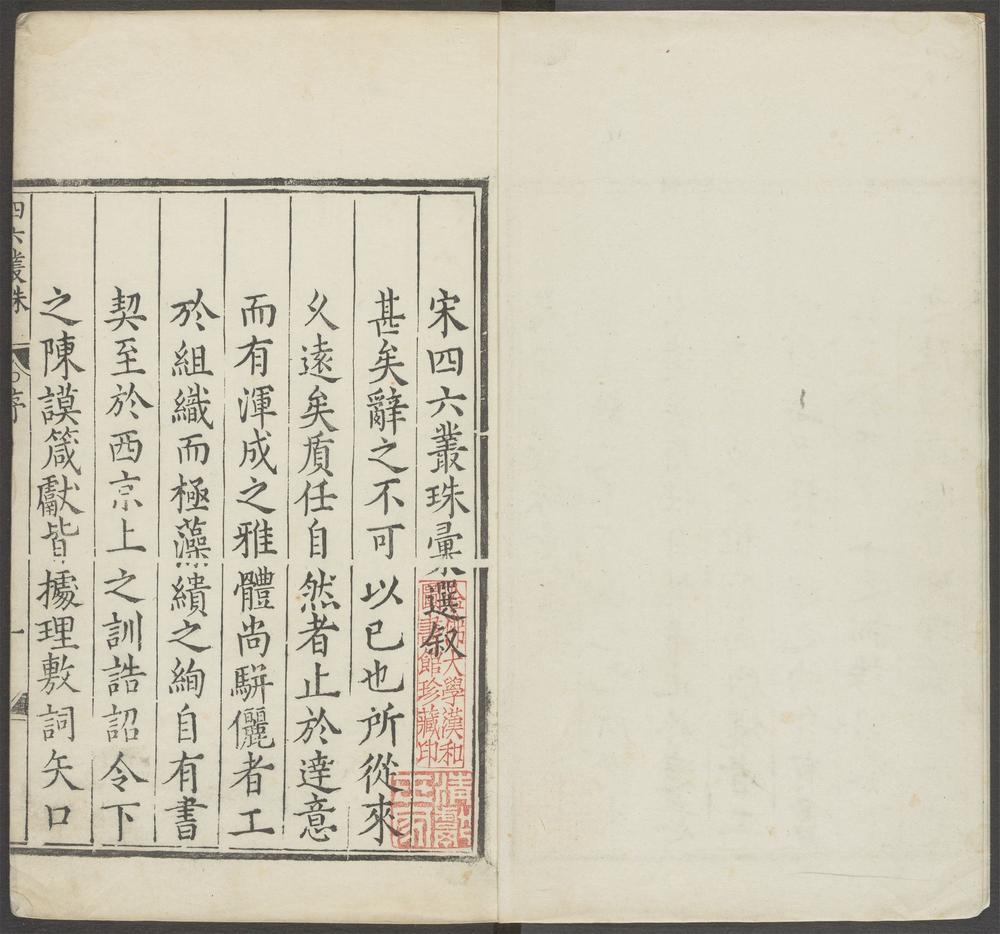 宋四六叢珠彙選叙
甚矣辭之不可以已也所從來
乆遠矣質任自然者止於達意
而有渾成之雅體尚駢儷者工
於組織而極藻繢之絢自有書
契至於西京上之訓誥詔令下
之陳謨箴獻皆據理敷詞矢口
四六叢珠
序
一
哈佛大學漢和
圖書館珍藏印